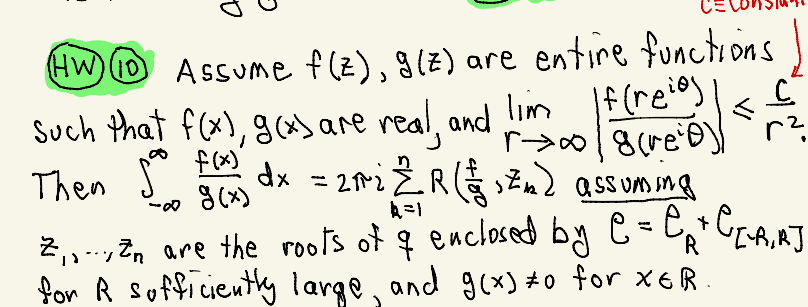 C≡Constant
HW 10 Assume f(z), g(z) are entire functions
such that f(x), g(x) are real, and lim r→∞ |f(re^{iθ})/g(re^{iθ})| ≤ C/r².
Then ∫_{-∞}^{∞} f(x)/g(x) dx = 2πi Σ_{k=1}^{n} R(f/g, z_k) assuming
z₁, ..., zₙ are the roots of g enclosed by C = C_R + C_{[-R,R]}
for R sufficiently large, and g(x) ≠ 0 for x∈R.